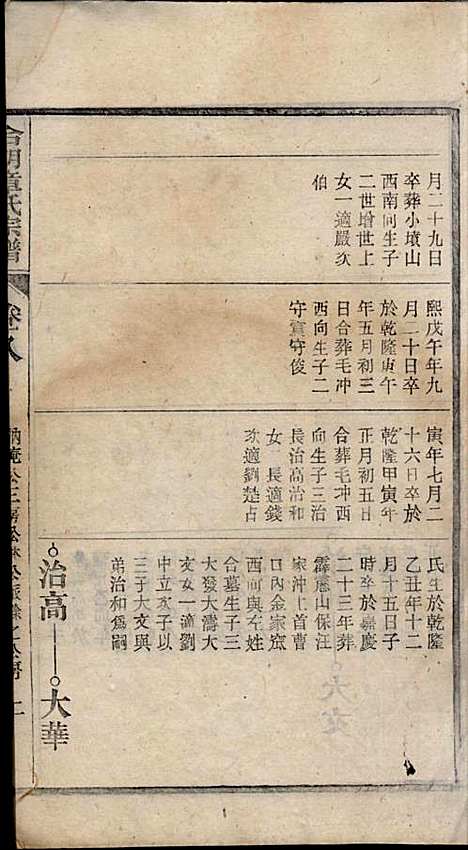 月二十九日
卒葬小墳山
西南向生子
二世增世上
女一適嚴次
伯
熙戊午年九
月二十日卒
於乾隆庚午
年五月初三
日合葬毛冲
西向生子二
守寘守俊
寅年七月二
十六日卒於
乾隆甲寅年
正月初五日
合葬毛冲西
向生子三治
長治高治和
女一長適錢
次適劉楚占
氏生於乾隆
乙丑年十二
月十五日子
時卒於嘉慶
二十三年葬
霹靂山保汪
家沖上首曹
口內金家窊
西向與左姓
合墓生子三
大發大濤大
文女一適劉
中立次子以
三于大文與
弟治和為嗣
治高
大華
章氏宗譜
卷八
三房